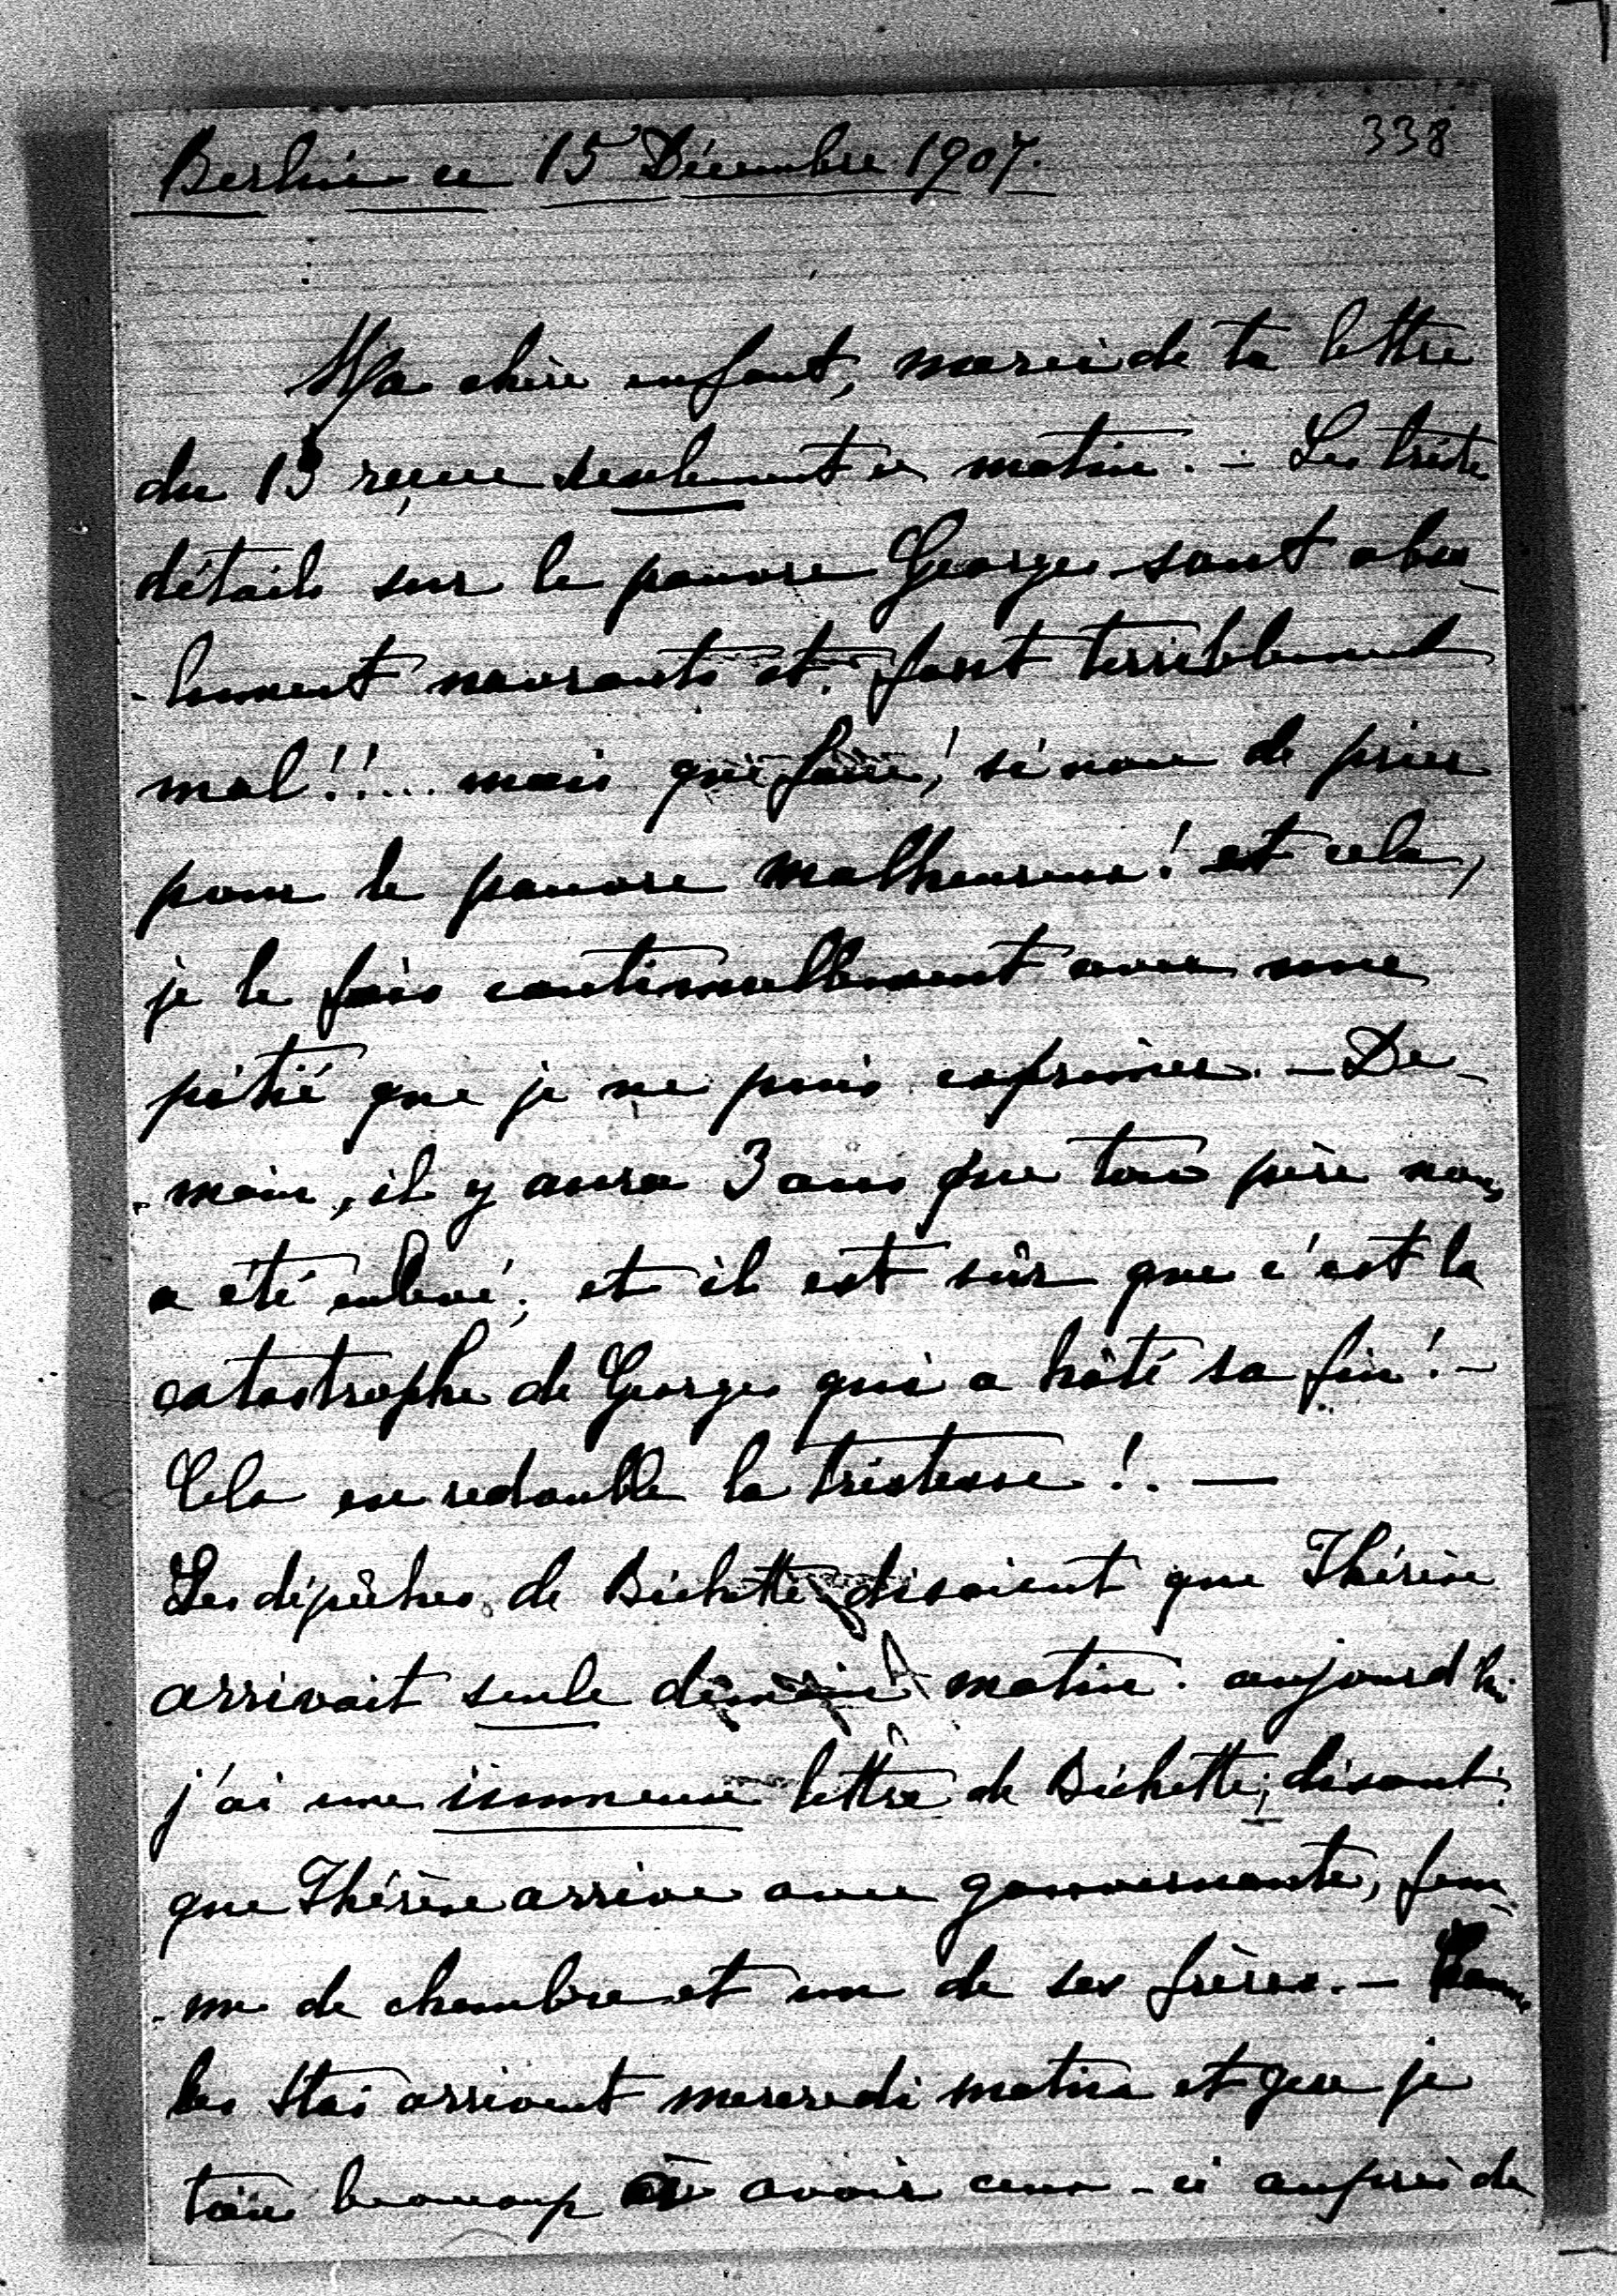 338
Berlin ce 15 Décembre 1907.
Ma chère enfant, merci de ta lettre
du 13 reçue seulement ce matin. - Les tristes
détails sur le pauvre Georges sont abso-
-lument navrants et font terriblement
mal!!... mais que faire! si non de prier
pour le pauvre malheureux! et cela,
je le fais continuellement avec une
pitié que je ne puis exprimer. - De-
-main, il y aura 3 ans que ton père nous
a été enlevé; et il est sûr que c'est la
catastrophe de Georges qui a hâté sa fin! -
Cela en redouble la tristesse!. —
Les dépêches de Bichette disaient que Thérèse
arrivait seule demain matin. aujourd'hui
j'ai une immense lettre de Bichette; disant:
que Thérèse arrive avec gouvernante, fem-
-me de chambre et un de ses frères. - Comme
les Stas arrivent mercredi matin et que je
tiens beaucoup à avoir ceux-ci auprès de